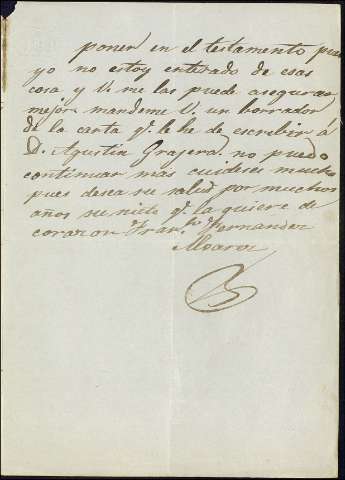 poner en el testamento pues
yo no estoy enterado de esas
cosa y V. me las puede asegurar
mejor mandeme V. un borrador
de la carta q. le he de escribir á
D. Agustin Grajera. no puedo
continuar más cuidese mucho
pues desea su salud por muchos
años su nieto q. la quiere de
corazon Fran.co Fernandez
Alvarez